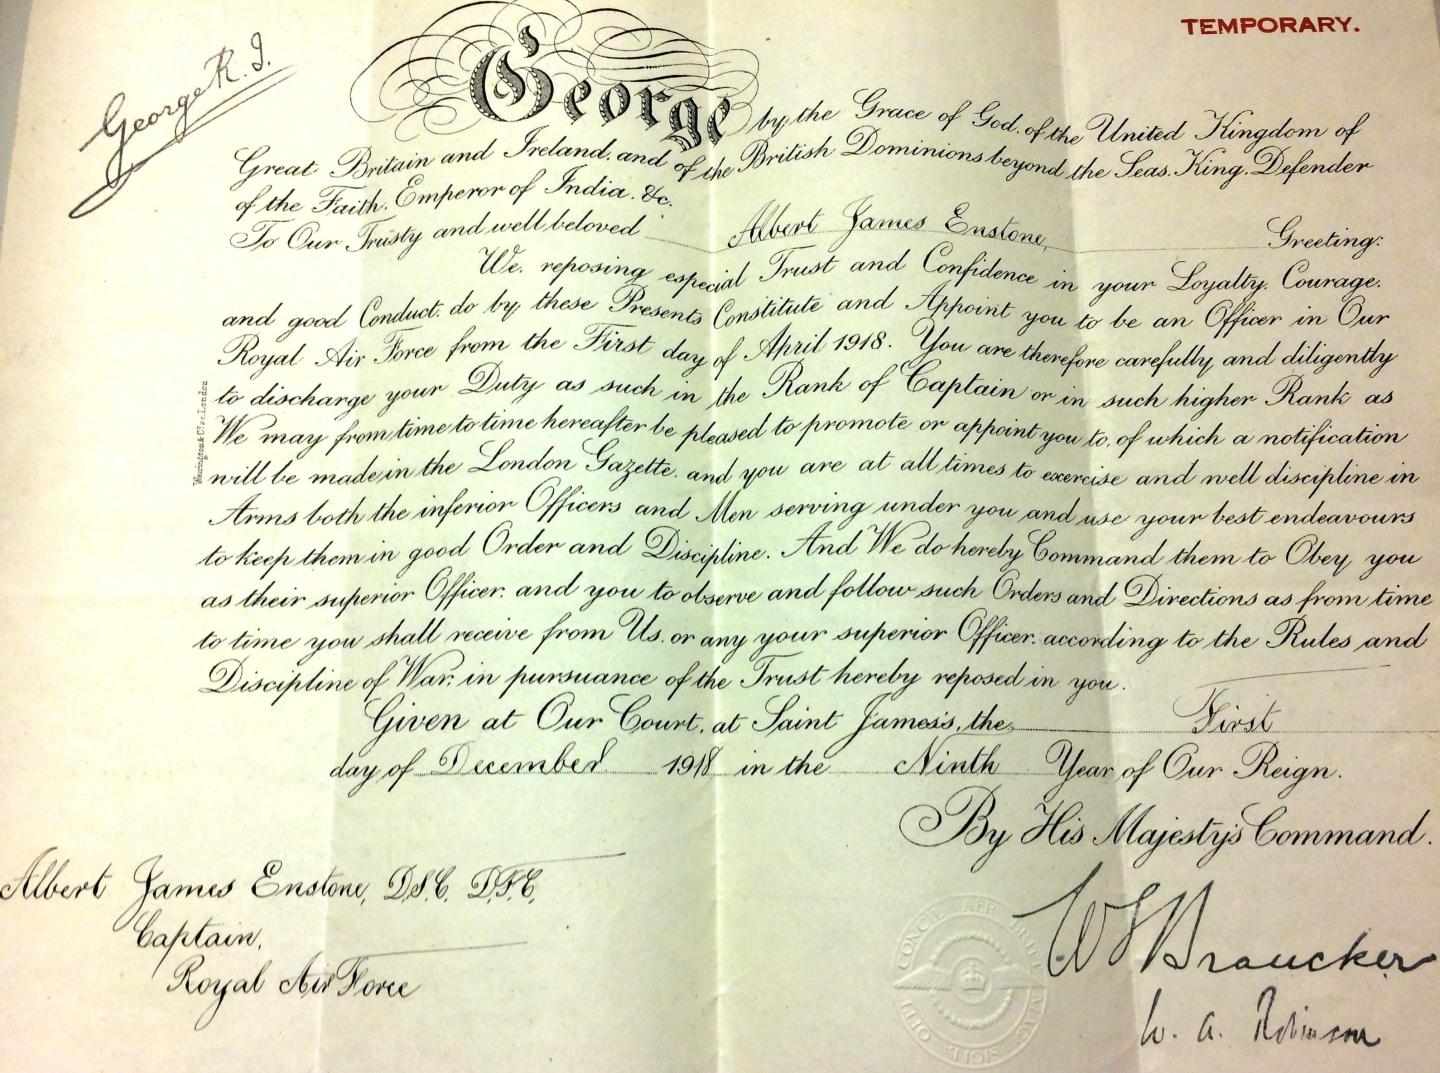 TEMPORARY.
George R. I.
George by the Grace of God, of the United Kingdom of
Great Britain and Ireland, and of the British Dominions beyond the Seas, King, Defender
of the Faith, Emperor of India, &c.
To Our Trusty and well beloved Albert James Enstone, Greeting:
We, reposing especial Trust and Confidence in your Loyalty, Courage,
and good Conduct, do by these Presents Constitute and Appoint you to be an Officer in Our
Royal Air Force from the First day of April 1918. You are therefore carefully and diligently
to discharge your Duty as such in the Rank of Captain or in such higher Rank as
We may from time to time hereafter be pleased to promote or appoint you to, of which a notification
will be made in the London Gazette, and you are at all times to exercise and well discipline in
Arms both the inferior Officers and Men serving under you and use your best endeavours
to keep them in good Order and Discipline. And We do hereby Command them to Obey you
as their superior Officer, and you to observe and follow such Orders and Directions as from time
to time you shall receive from Us, or any your superior Officer, according to the Rules and
Discipline of War, in pursuance of the Trust hereby reposed in you.
Given at Our Court, at Saint James's, the First
day of December 1918 in the Ninth Year of Our Reign.
By His Majesty's Command.
Albert James Enstone, D.S.C. D.F.C.
Captain,
Royal Air Force
W. A. Robinson